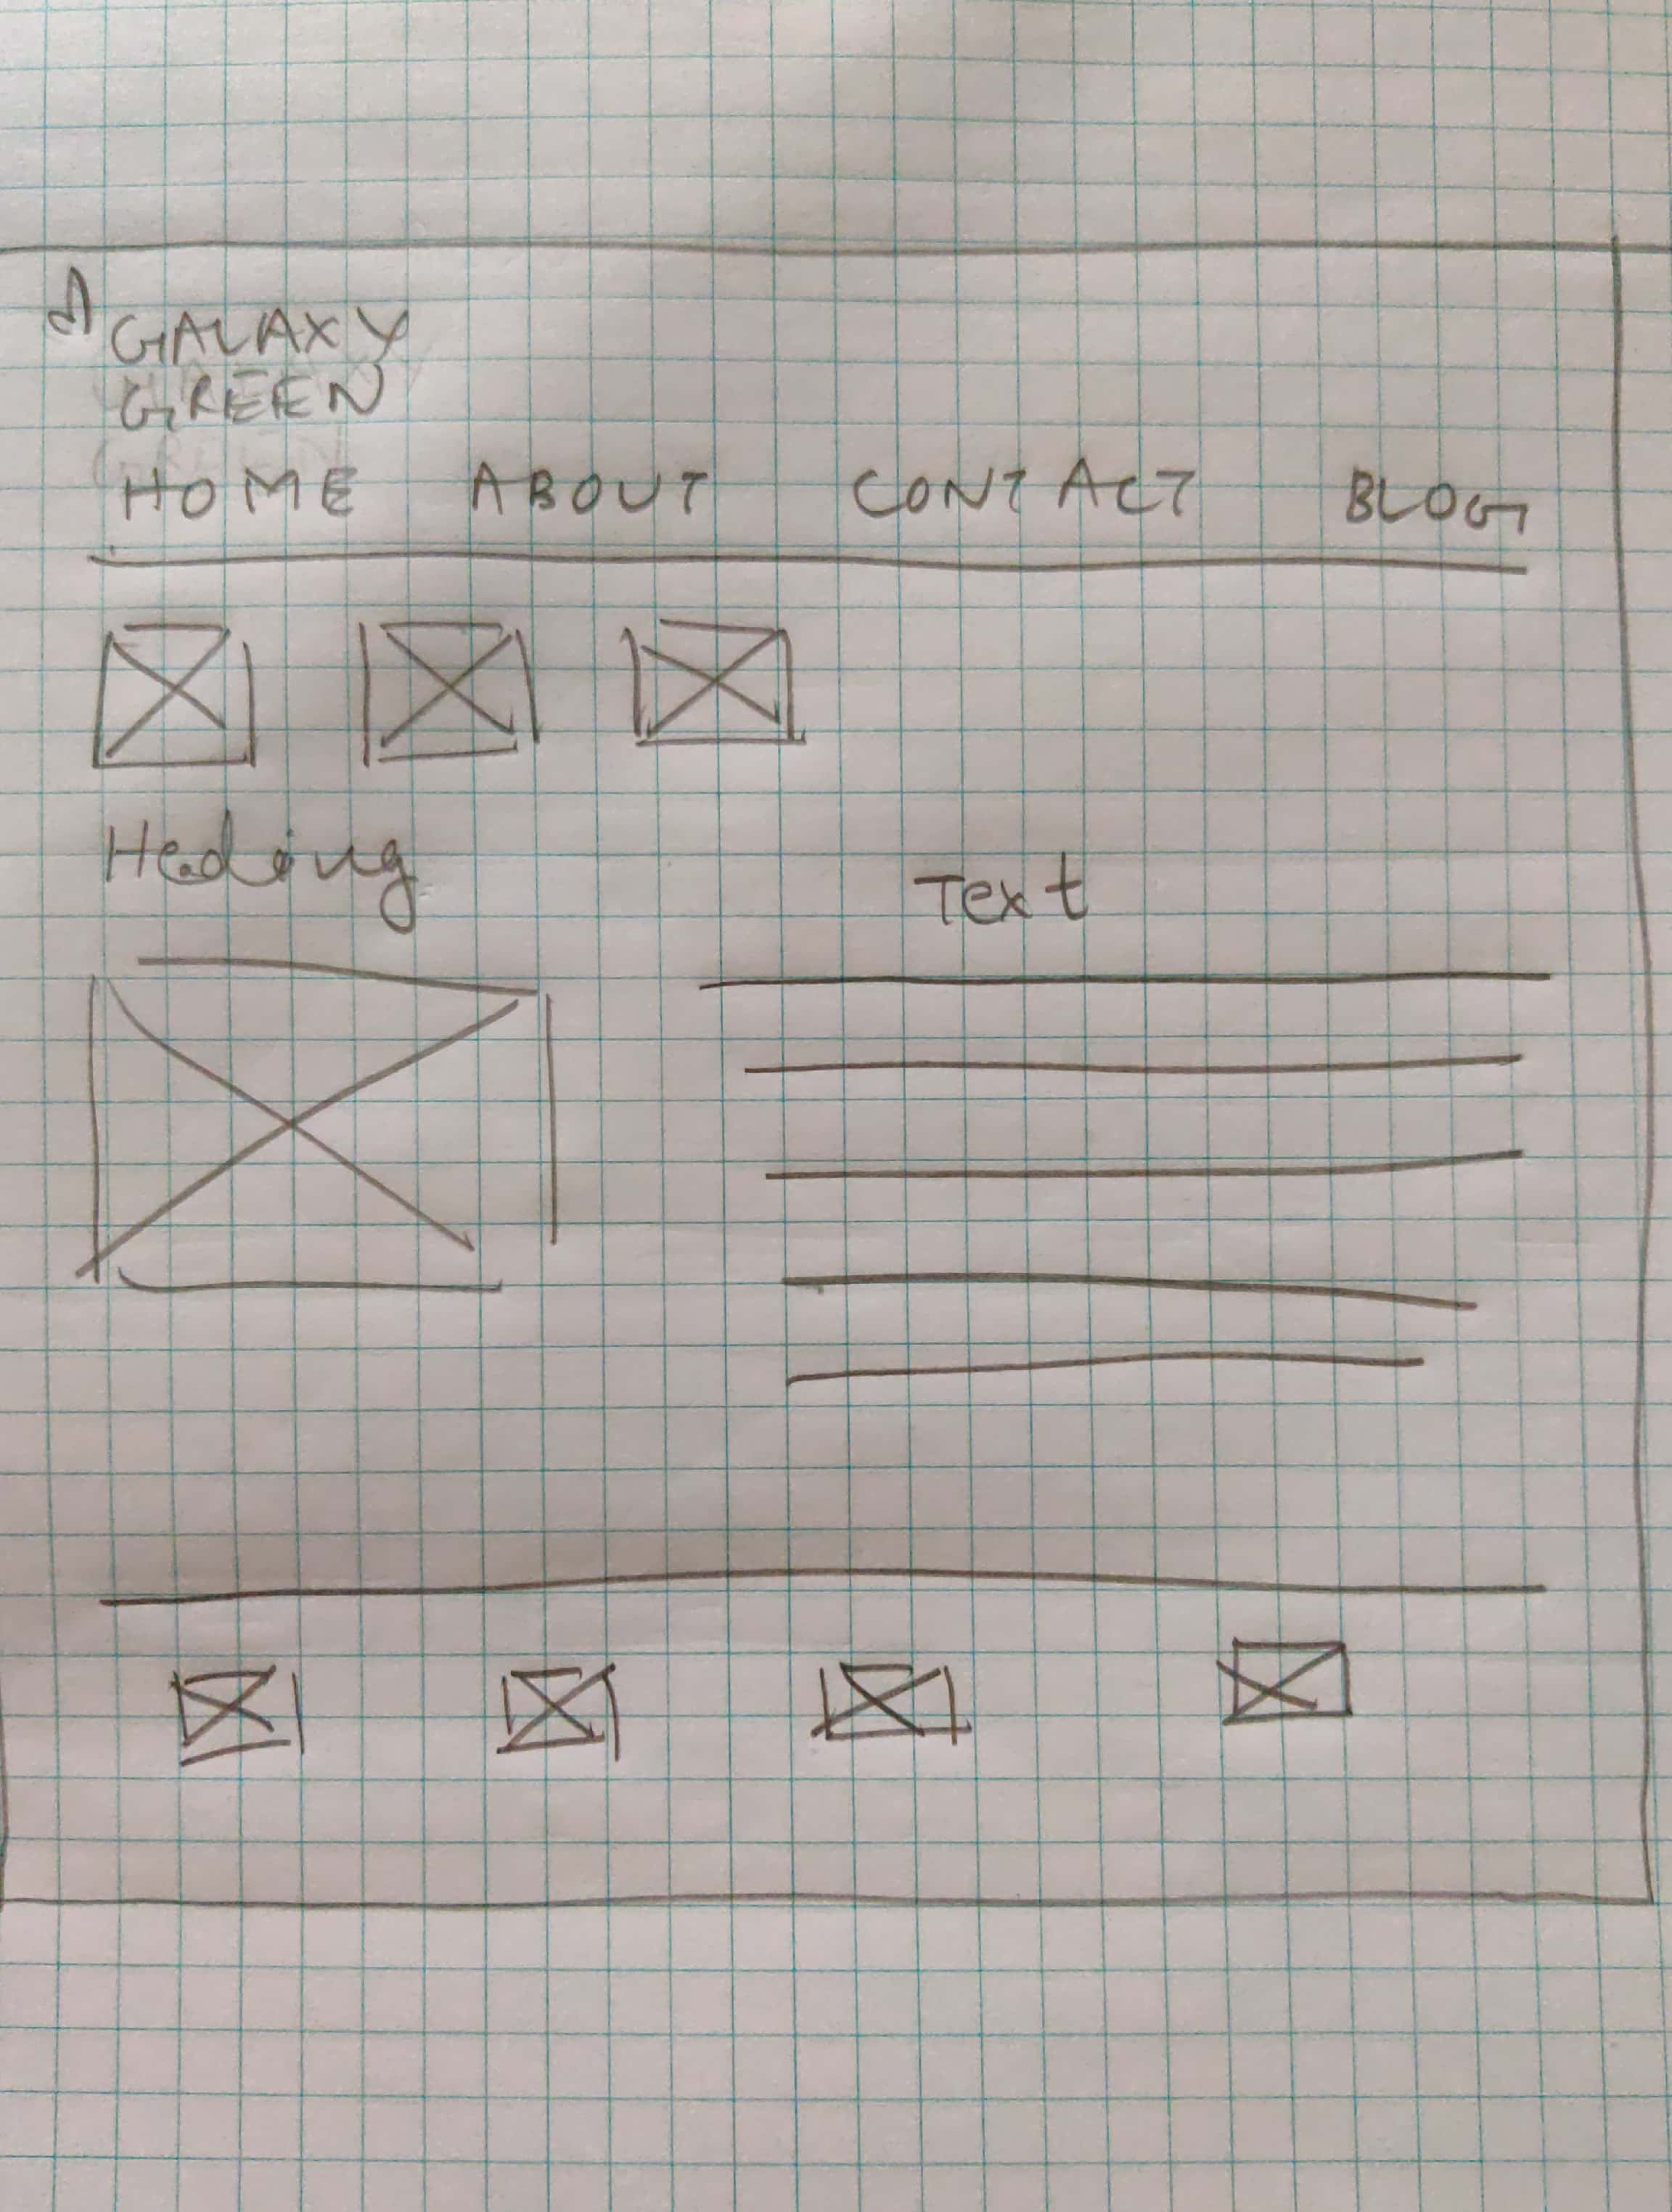 GALAXY
GREEN
HOME ABOUT CONTACT BLOG
Heding
Text